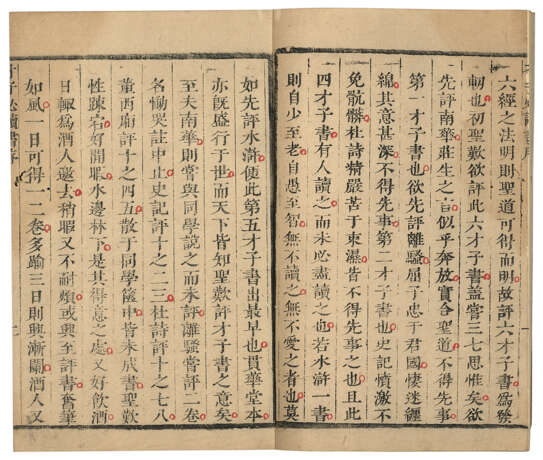 六經之法明則聖道可得而明故評六才子書為發
軔也初聖歎欲評此六才子書蓋嘗三七思惟矣欲
先評南華莊生之言似乎奔放實合聖道不得先事
第一才子書也欲先評離騷屈子忠于君國悽迷纏
綿其意甚深不得先事第二才子書也史記憤激不
免骯髒杜詩精嚴苦于束濕皆不得先事之也且此
四才子書有人讀之而未必盡讀之也若水滸一書
則自少至老自愚至智無不讀之無不愛之者也莫
如先評水滸使此第五才子書出最早也貫華堂本
亦旣盛行于世而天下皆知聖歎評才子書之意矣
至夫南華則嘗與同學說之而未評離騷嘗評二卷
名慟哭註中止史記評十之二三杜詩評十之七八
董西廂評十之四五散于同學篋中皆未成書聖歎
性疎宕好閒暇水邊林下是其得意之處又好飲酒
日輒為酒人邀去稍暇又不耐煩或興至評書奮筆
如風一日可得一二卷多踰三日則興漸闌酒人又
才子必讀書序